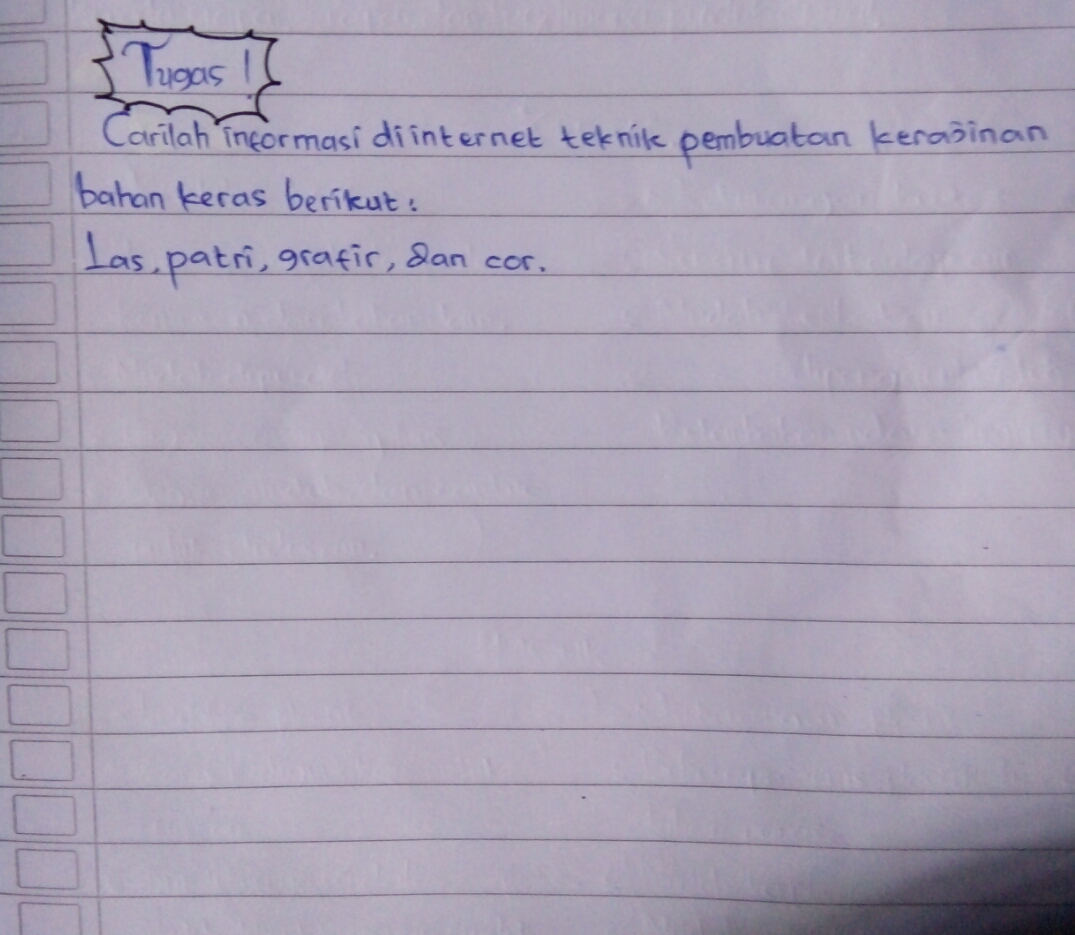 Tugas !
Carilah informasi di internet teknik pembuatan kerajinan
bahan keras berikut :
Las, patri, grafir, dan cor.